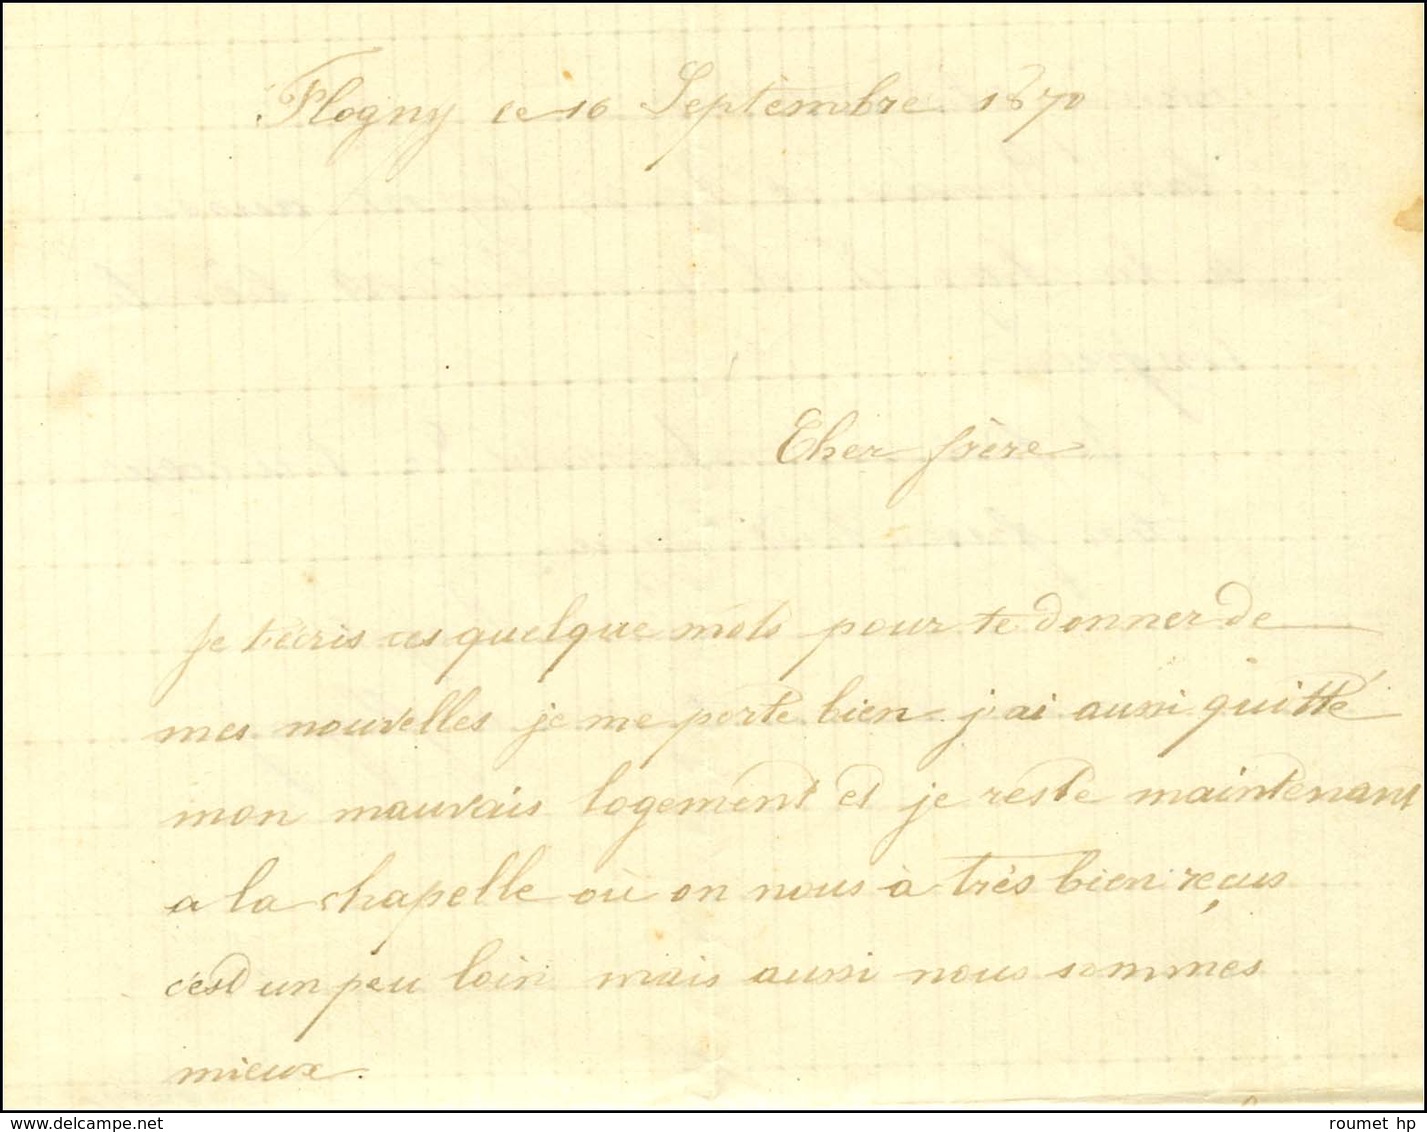 Flogny ce 16 Septèmbre 1870
Cher frère
Je t'écris ces quelque mots pour te donner de
mes nouvelles je me porte bien j'ai aussi quitté
mon mauvais logement et je reste maintenant
a la chapelle où on nous à très bien reçus
c'est un peu loin mais aussi nous sommes
mieux.
www.delcampe.net
roumet hp